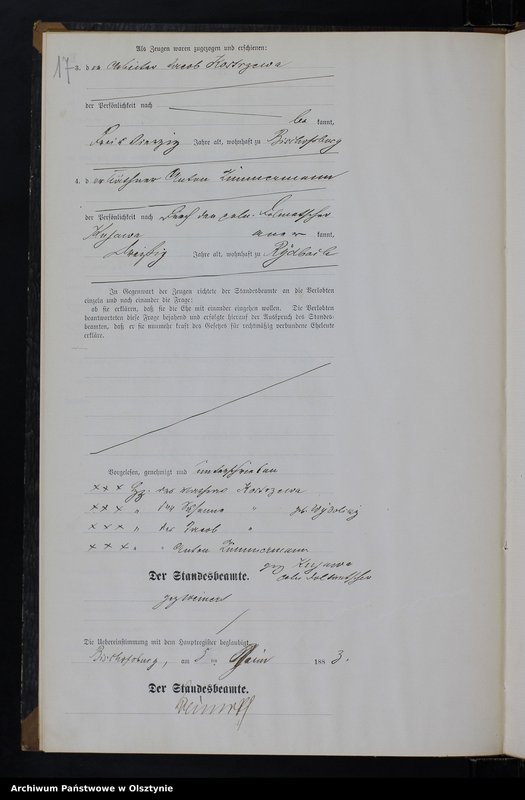 17
Als Zeugen waren zugezogen und erschienen:
3. der Arbeiter Jacob Kostrzewa
der Persönlichkeit nach
be kannt,
Jahre alt, wohnhaft zu Bischofsburg
4. der Käthner Anton Zimmermann
der Persönlichkeit nach durch den poln. Dolmetscher
Kujawa aner kannt,
dreißig Jahre alt, wohnhaft zu Rydbach
In Gegenwart der Zeugen richtete der Standesbeamte an die Verlobten
einzeln und nach einander die Frage:
ob sie erklären, daß sie die Ehe mit einander eingehen wollen. Die Verlobten
beantworteten diese Frage bejahend und erfolgte hierauf der Ausspruch des Standes-
beamten, daß er sie nunmehr kraft des Gesetzes für rechtmäßig verbundene Eheleute
erkläre.
Vorgelesen, genehmigt und unterschrieben
+++ Hz. des Kostrzewa
+++ " der " geb.
+++ " des Jacob "
+++ " " Anton Zimmermann
gez Kujawa
poln Dolmetscher
Der Standesbeamte.
gez
Die Uebereinstimmung mit dem Hauptregister beglaubigt
Bischofsburg, am 5 ten 188 3.
Der Standesbeamte.
Archiwum Państwowe w Olsztynie